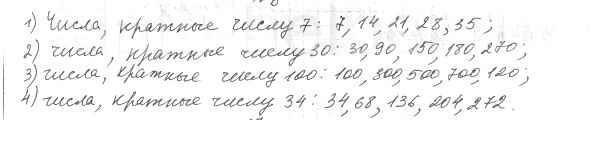 1) Числа, кратные числу 7: 7, 14, 21, 28, 35;
2) числа, кратные числу 30: 30, 90, 150, 180, 270;
3) числа, кратные числу 100: 100, 300, 500, 700, 120;
4) числа, кратные числу 34: 34, 68, 136, 204, 272.